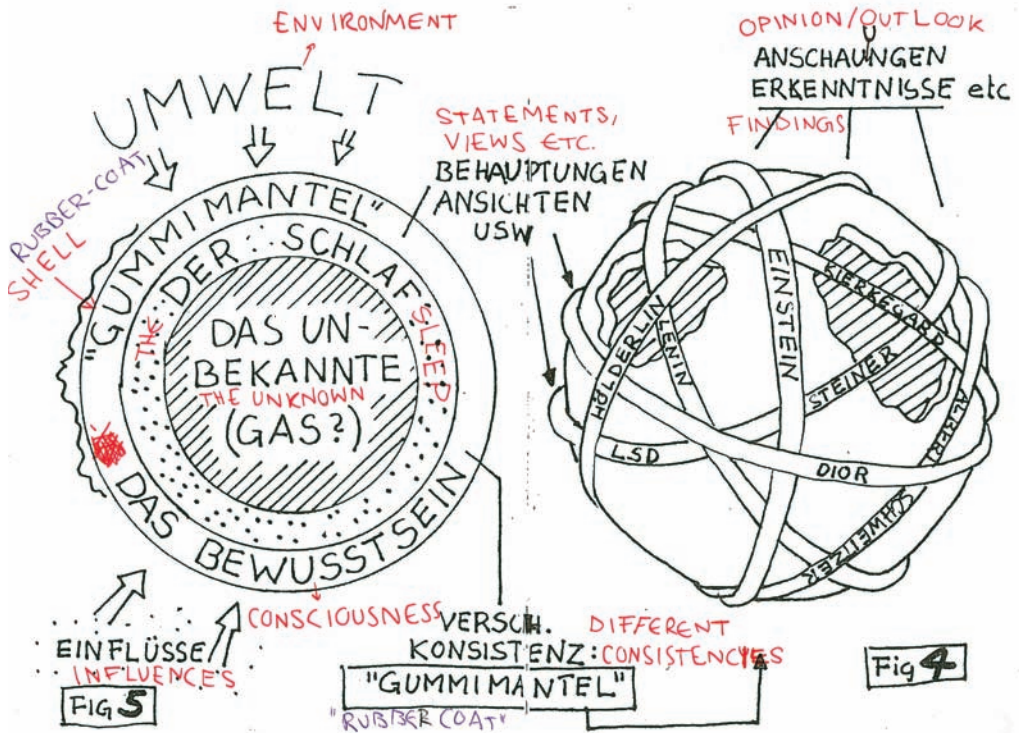 ENVIRONMENT
UMWELT
RUBBER-COAT
SHELL
"GUMMIMANTEL"
THE
DER SCHLAF
SLEEP
DAS UN-
BEKANNTE
THE UNKNOWN
(GAS?)
DAS BEWUSSTSEIN
CONSCIOUSNESS
EINFLÜSSE
INFLUENCES
FIG 5
STATEMENTS,
VIEWS ETC.
BEHAUPTUNGEN
ANSICHTEN
USW
VERSCH.
KONSISTENZ:
DIFFERENT
CONSISTENCYES
"GUMMIMANTEL"
"RUBBER COAT"
OPINION/OUTLOOK
U
ANSCHAUNGEN
ERKENNTNISSE etc
FINDINGS
HÖLDERLIN
LENIN
EINSTEIN
KIERKEGARD
STEINER
LSD
DIOR
ALBERT
SCHWEITZER
Fig 4